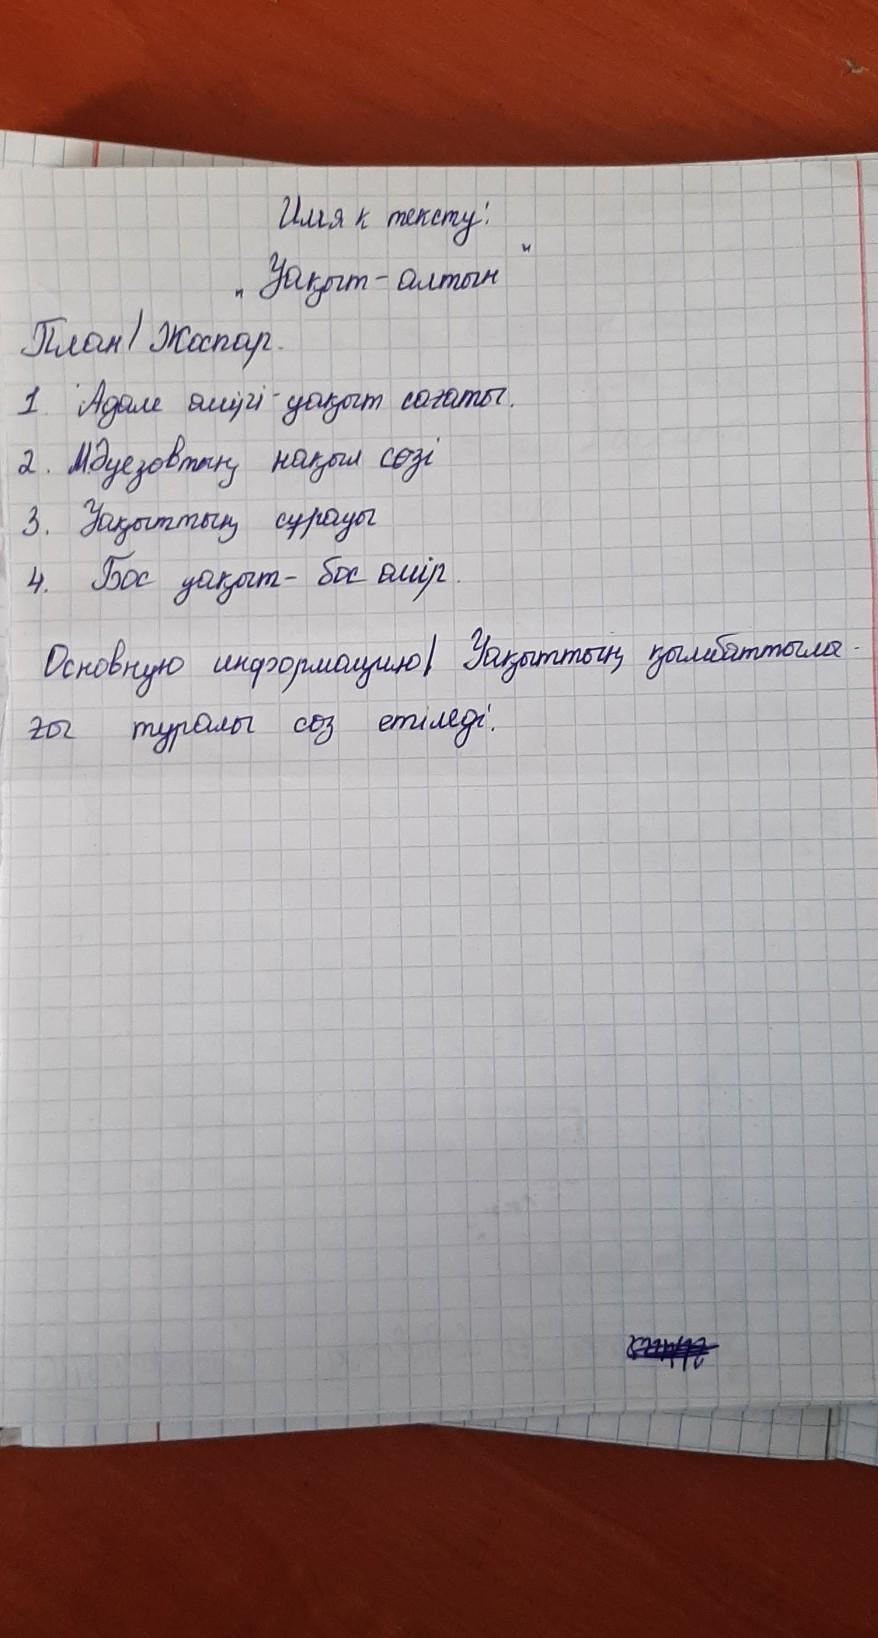 Имя к тексту:
„Уақыт-алтын"
План/ Жоспар.
1. Адам өмірі-уақыт сағаты.
2. М.Әуезовтың нақыл сөзі
3. Уақыттың сұрауы
4. Бос уақыт- бос өмір.
Основную информацию/ Уақыттың қымбаттылы-
ғы туралы сөз етіледі.